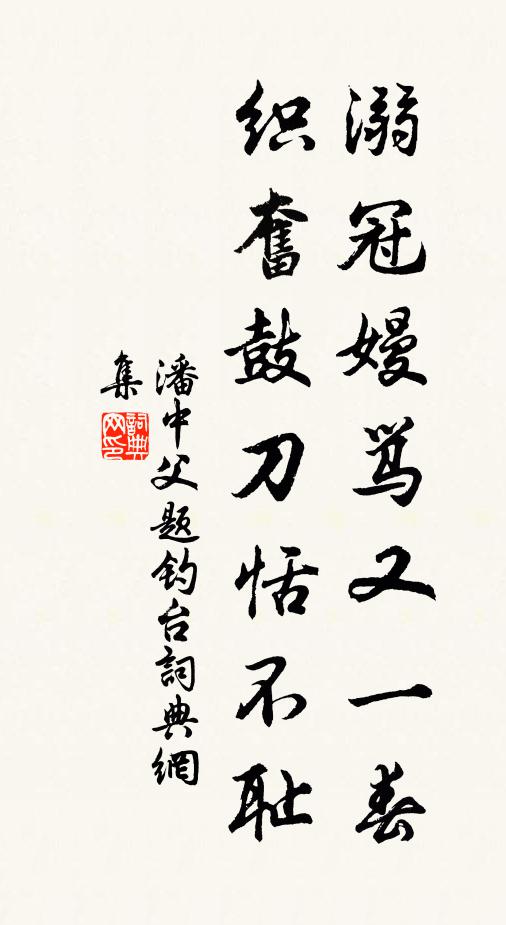 溺冠嫚骂又一秦
织奮鼓刀恬不耻
潘中父题钓台詞典網
集
詞典
网印